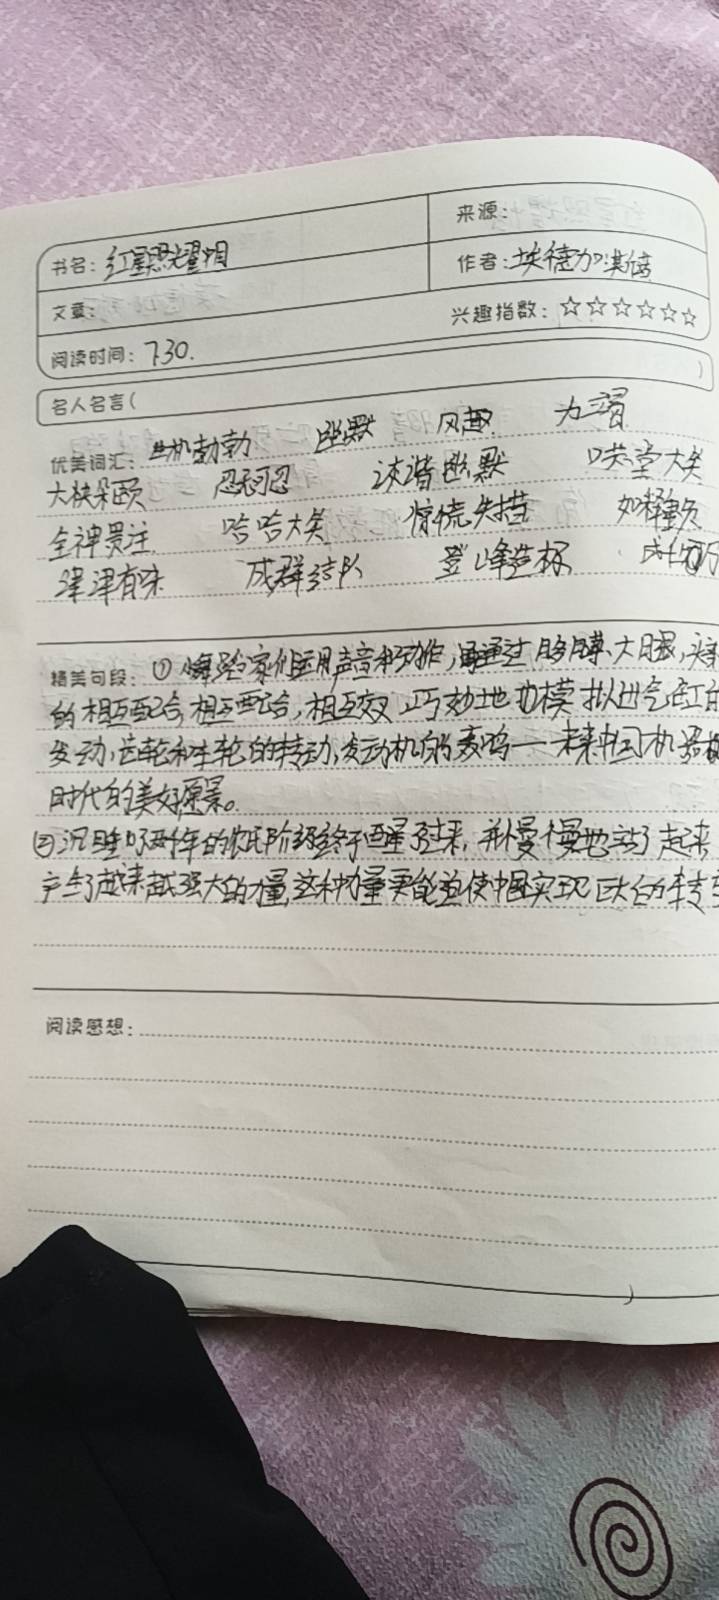 来源：
书名：红星照耀中国
作者：埃德加·斯诺
文章：
兴趣指数：☆☆☆☆☆☆
阅读时间：7.30.
名人名言（ ）
优美词汇：生机勃勃 幽默 风趣
大快朵颐 忍无可忍 诙谐幽默 哄堂大笑
全神贯注 哈哈大笑 惊慌失措 如释重负
津津有味 成群结队 登峰造极 成千上万
精美句段：①舞蹈家们运用声音和动作，再通过胳膊、大腿，头
的相互配合，相互配合，相互交叉巧妙地也模拟出气缸的
发动，齿轮和车轮的转动，发动机的轰鸣——未来中国机器
时代的美好愿景。
②沉睡了两千年的农民阶级终于醒了过来，并慢慢地站了起来
产生了越来越强大的力量，这种力量更能迫使中国实现巨大的转变
阅读感想：